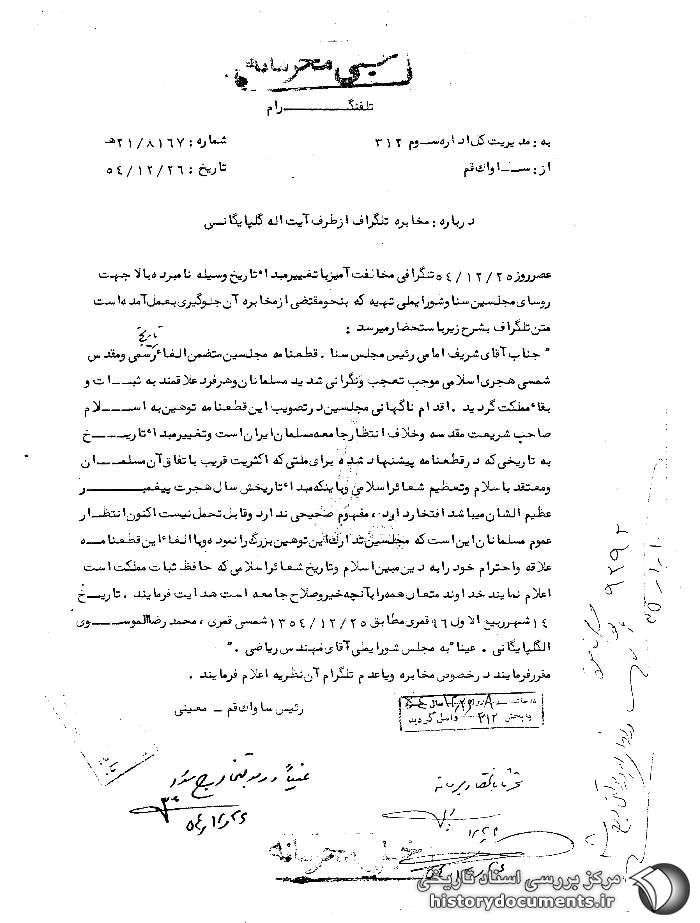 خیلی محرمانه
تلفنگـــــرام
به : مدیریت کل اداره سوم ۳۱۲
شماره : ۲۱/۸۱۶۷ هـ
از : ساواک قم
تاریخ : ۵۴/۱۲/۲۶
درباره : مخابره تلگراف از طرف آیت اله گلپایگانی
عصر روز ۵۴/۱۲/۲۵ تلگرافی مخالفت آمیز با تغییر مبداء تاریخ وسیله نامبرده بالا جهت
روسای مجلسین سنا و شورایملی تهیه که بنحو مقتضی از مخابره آن جلوگیری بعمل آمده است
متن تلگراف بشرح زیر باستحضار میرسد :
" جناب آقای شریف امامی رئیس مجلس سنا . قطعنامه مجلسین متضمن الغاء تاریخ رسمی و مقدس
شمسی هجری اسلامی موجب تعجب و نگرانی شدید مسلمانان و هر فرد علاقمند به ثبات و
بقاء مملکت گردید . اقدام ناگهانی مجلسین در تصویب این قطعنامه توهین به اسلام
صاحب شریعت مقدسه و خلاف انتظار جامعه مسلمان ایران است و تغییر مبداء تاریخ
به تاریخی که در قطعنامه پیشنهاد شده برای ملتی که اکثریت قریب باتفاق آن مسلمان
و معتقد باسلام و تعظیم شعائر اسلامی و باینکه مبداء تاریخش سال هجرت پیغمبر
عظیم الشان میباشد افتخار دارد ، مفهوم صحیحی ندارد و قابل تحمل نیست اکنون انتظار
عموم مسلمانان این است که مجلسین تدارک این توهین بزرگ را نموده و با الغاء این قطعنامه
علاقه و احترام خود را به دین مبین اسلام و تاریخ شعائر اسلامی که حافظ ثبات مملکت است
اعلام نمایند خداوند متعال همه را بآنچه خیر و صلاح جامعه است هدایت فرمایند . تاریخ
۱۴ شهر ربیع الاول ۹۶ قمری مطابق ۱۳۵۴/۱۲/۲۵ شمسی قمری ، محمد رضا الموسوی
الگلپایگانی . عینا" به مجلس شورایملی آقای مهندس ریاضی . "
مقرر فرمایند در خصوص مخابره و یا عدم تلگرام آن نظریه اعلام فرمایند .
رئیس ساواک قم - معینی
به بخش ۳۱۲ واصل گردید
۵۴/۱۲/۲۶
خیلی محرمانه
۹۲۹۲
مرکز بررسی اسناد تاریخی
historydocuments.ir